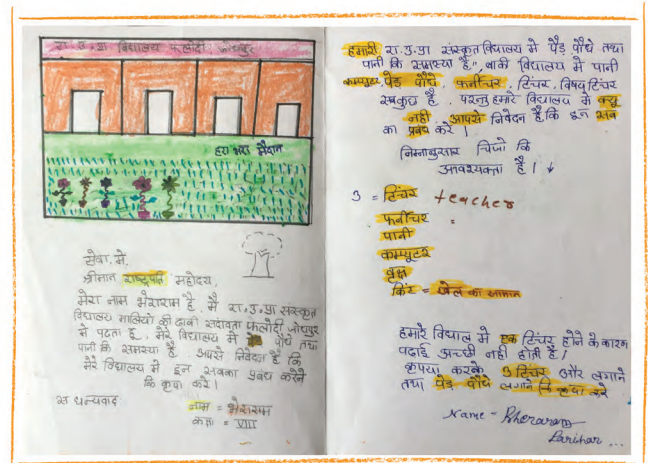 रा. उ. प्रा विद्यालय फलोदी जोधपुर
हरा भरा मैदान
सेवा में,
श्रीमान राष्ट्रपति महोदय,
मेरा नाम भेराराम है. मै रा. उ. प्रा संस्कृत
विद्यालय मालियों की ढाणी सदावता फलोदी जोधपुर
मे पढता हू. मेरे विद्यालय में पौधे तथा
पानी कि समस्या है. आपसे निवेदन है कि
मेरे विद्यालय मे इन सबका प्रबंध करने
कि कृपा करे।
धन्यवाद
नाम = भेराराम
कक्षा = VIII
हमारी रा. उ. प्रा संस्कृत विद्यालय मे पेड़ पौधे तथा
पानी कि समस्या है", बाकी विद्यालय मे पानी
कम्प्युटर पेड पौधे, फर्नीचर, टिंचर, विषय टिंचर
सबकुछ है. परन्तु हमारे विद्यालय मे क्यू
नही. आपसे निवेदन है. कि इन सब
का प्रबंध करे।
निम्नानुसार चिजो कि
आवश्यक्ता है। ↓
3 = टिंचर teacher
फर्नीचर =
पानी
कम्प्युटर
वृक्ष
किट = खेल का सामान
हमारे विद्याल मे एक टिंचर होने के कारण
पढाई अच्छी नही होती है।
कृपया करके 3 टिंचर और लगाने
तथा पेड़ पौधे लगाने कि कृपा करे
Name - Bheraram
Parihar...